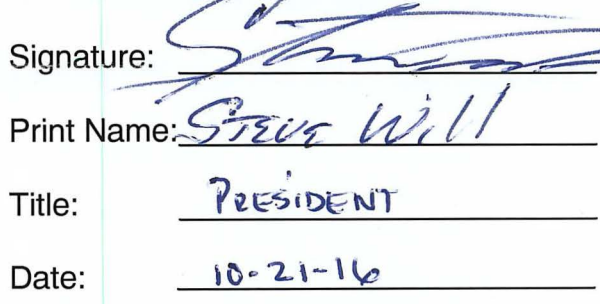 Signature:
Print Name: STEVE Will
Title: PRESIDENT
Date: 10-21-16